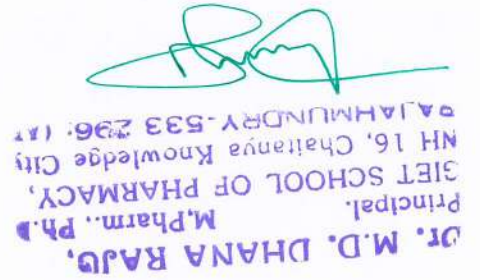 Dr. M.D. DHANA RAJU,
M,Pharm.. Ph.D
Principal.
GIET SCHOOL OF PHARMACY,
NH 16, Chaitanya Knowledge City
RAJAHMUNDRY-533 296. (A